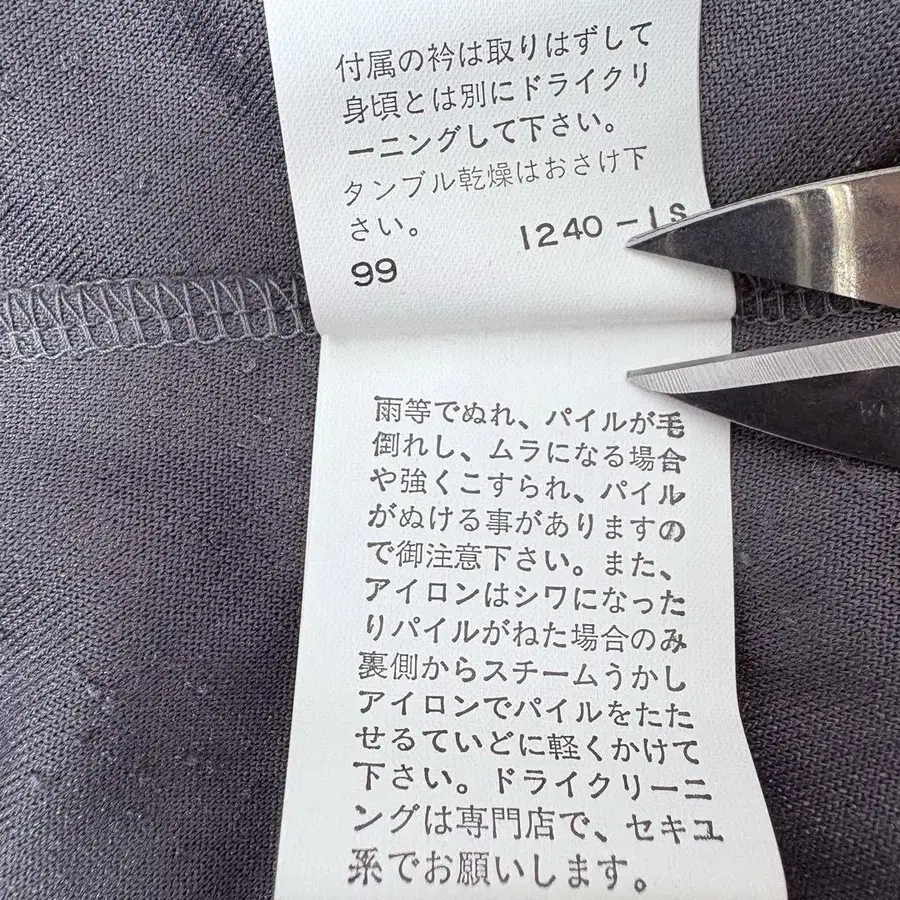 付属の衿は取りはずして
身頃とは別にドライクリ
ーニングして下さい。
タンブル乾燥はおさけ下
さい。
1240-1S
99
雨等でぬれ、パイルが毛
倒れし、ムラになる場合
や強くこすられ、パイル
がぬける事がありますの
で御注意下さい。また、
アイロンはシワになった
りパイルがねた場合のみ
裏側からスチームうかし
アイロンでパイルをたた
せるていどに軽くかけて
下さい。ドライクリーニ
ングは専門店で、セキユ
系でお願いします。